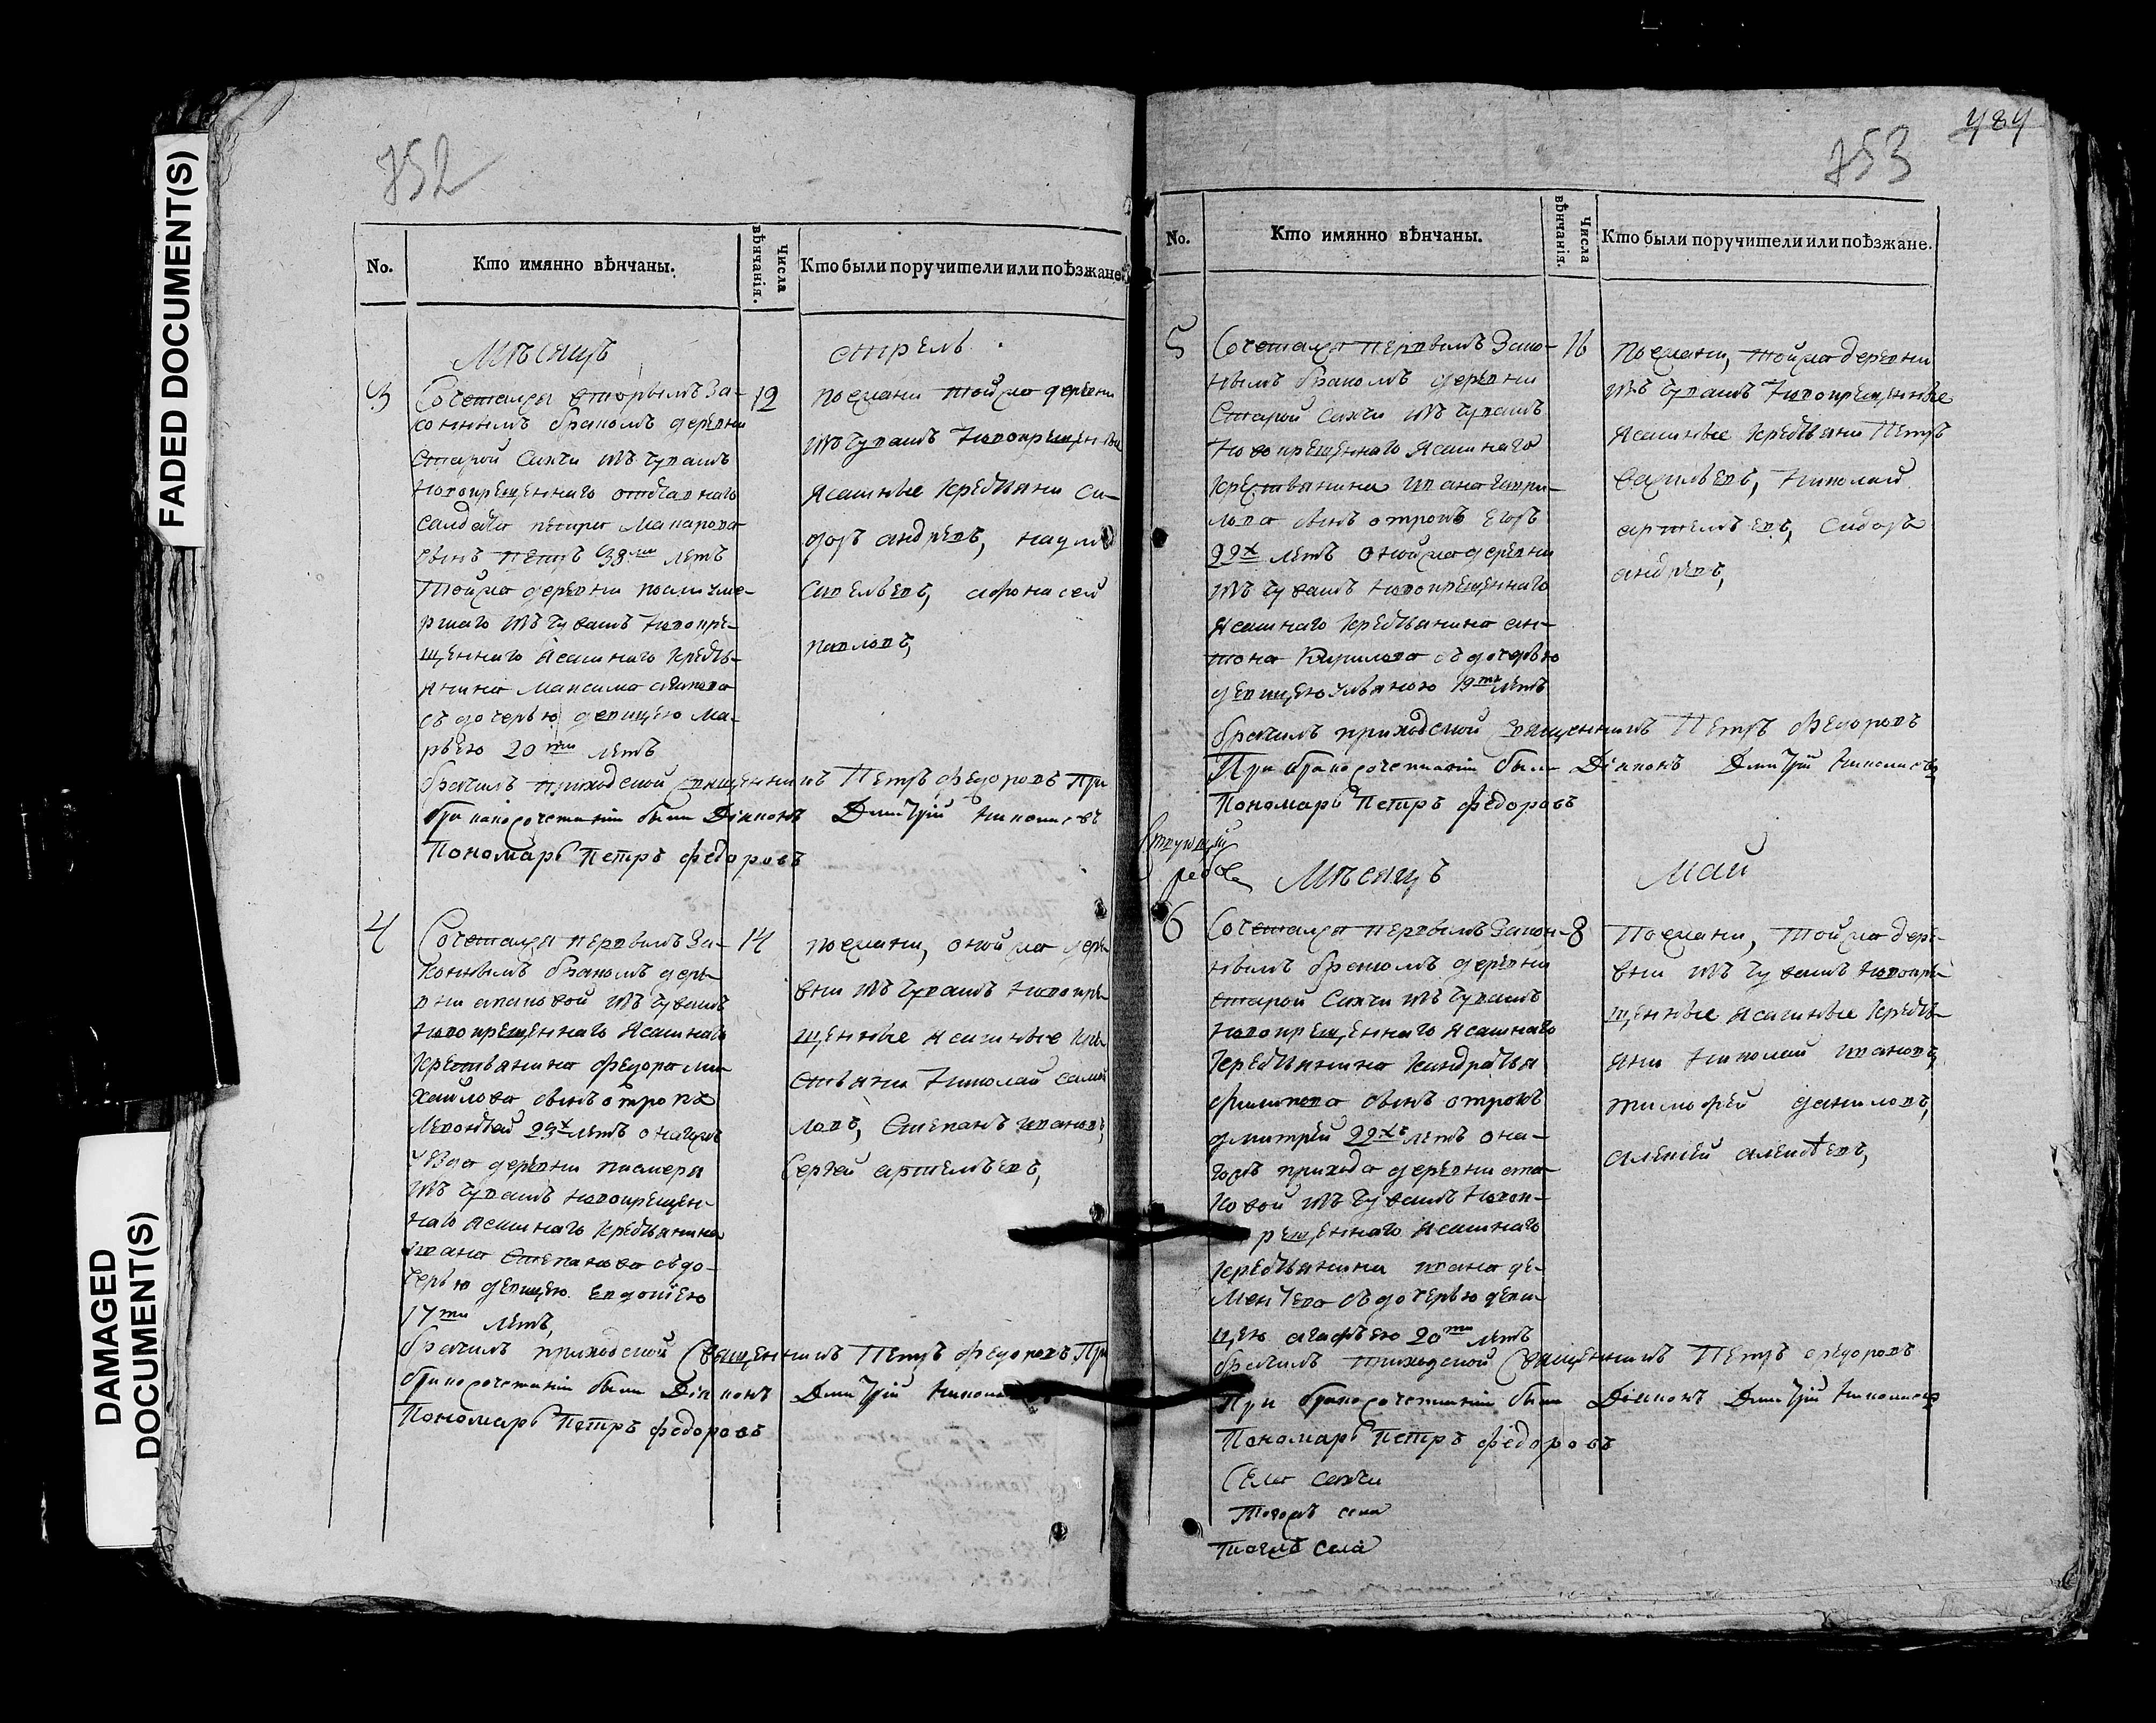 FADED DOCUMENT(S)
DAMAGED
DOCUMENT(S)
752
No.
Кто имянно вѣнчаны.
Числа
вѣнчанія.
Кто были поручители или поѣзжане.
Мѣсяцъ
апрель
3
Сочетался вторымъ за-
конымъ бракомъ деревни
Старой Сахчи изъ чувашъ
новокрещеннаго отставнаго
салдата петра Макарова
сынъ петръ 38ми летъ
тойжа деревни
ршаго изъ чувашъ новокре-
щеннаго ясашнаго кресть-
янина Максима
съ дочерью девицею Ма-
рьею 20ти летъ
12
поежани тойжа деревни
изъ чувашъ новокрещенные
ясашные крестьяни Си-
доръ андревъ, наум
Савельевъ, афонасей
павловъ,
брачилъ приходской священникъ Петръ федоровъ При
бракосочетаніи были Діаконъ Димитрій Николаевъ
Пономарь Петръ федоровъ
4
Сочетался первымъ за-
коннымъ бракомъ дере-
вни акановой изъ чувашъ
новокрещеннаго ясашнаго
крестьянина федора ми-
хайлова сынъ отрокъ
Леонтей 23х летъ
уезда деревни
изъ чувашъ новокрещен-
наго ясашнаго крестьянина
ивана Степанова съ до-
черью девицею Евдокиею
17ти летъ,
14
поежани, онойжа дере-
вни изъ чувашъ новокре-
щенные ясашные кре-
стьяни Николай самой
ловъ, Степанъ ивановъ,
Сергей артемьевъ,
брачилъ приходской Священникъ Петръ федоровъ При
бракосочетаніи были Діаконъ Димитрій
Пономарь Петръ федоровъ
484
753
No.
Кто имянно вѣнчаны.
Числа
вѣнчанія.
Кто были поручители или поѣзжане.
5
Сочетался первымъ зако-
ннымъ бракомъ деревни
Старой Сахчи изъ чувашъ
новокрещеннаго ясашнаго
крестьянина ивана гаври-
лова сынъ отрокъ Егоръ
22х летъ онойжа деревни
изъ чувашъ новокрещеннаго
ясашнаго крестьянина ан-
тона Кирилова съ дочерью
девицею ульяною 19ти летъ
16
поежани, тойжа деревни
изъ чувашъ новокрещенные
ясашные крестьяни Петръ
васильевъ, Николай
артемьевъ, Сидоръ
андревъ,
брачилъ приходской священникъ Петръ федоровъ
При бракосочетаніи были Діаконъ Димитрій Николаевъ
Пономарь Петръ федоровъ
Мѣсяцъ
май
6
Сочетался первымъ закон-
нымъ бракомъ деревни
старой Сахчи изъ чувашъ
новокрещеннаго ясашнаго
крестьянина Кандратья
филипова сынъ отрокъ
дмитрей 22хъ летъ она-
гожъ прихода деревни ака-
новой изъ чувашъ новок-
рещеннаго ясашнаго
крестьянина ивана де-
ментева съ дочерью деви-
цею агафьею 20ти летъ
8
Поежани, тойжа дере-
вни изъ чувашъ новокре-
щенные ясашные кресть-
яни Николай ивановъ,
тимофей даниловъ,
алексей алексеевъ,
брачилъ приходской священникъ Петръ федоровъ
При бракосочетаніи были Діаконъ Димитрій Николаевъ
Пономарь Петръ федоровъ
Села Сахчи
Тогожъ села
Тогожъ села